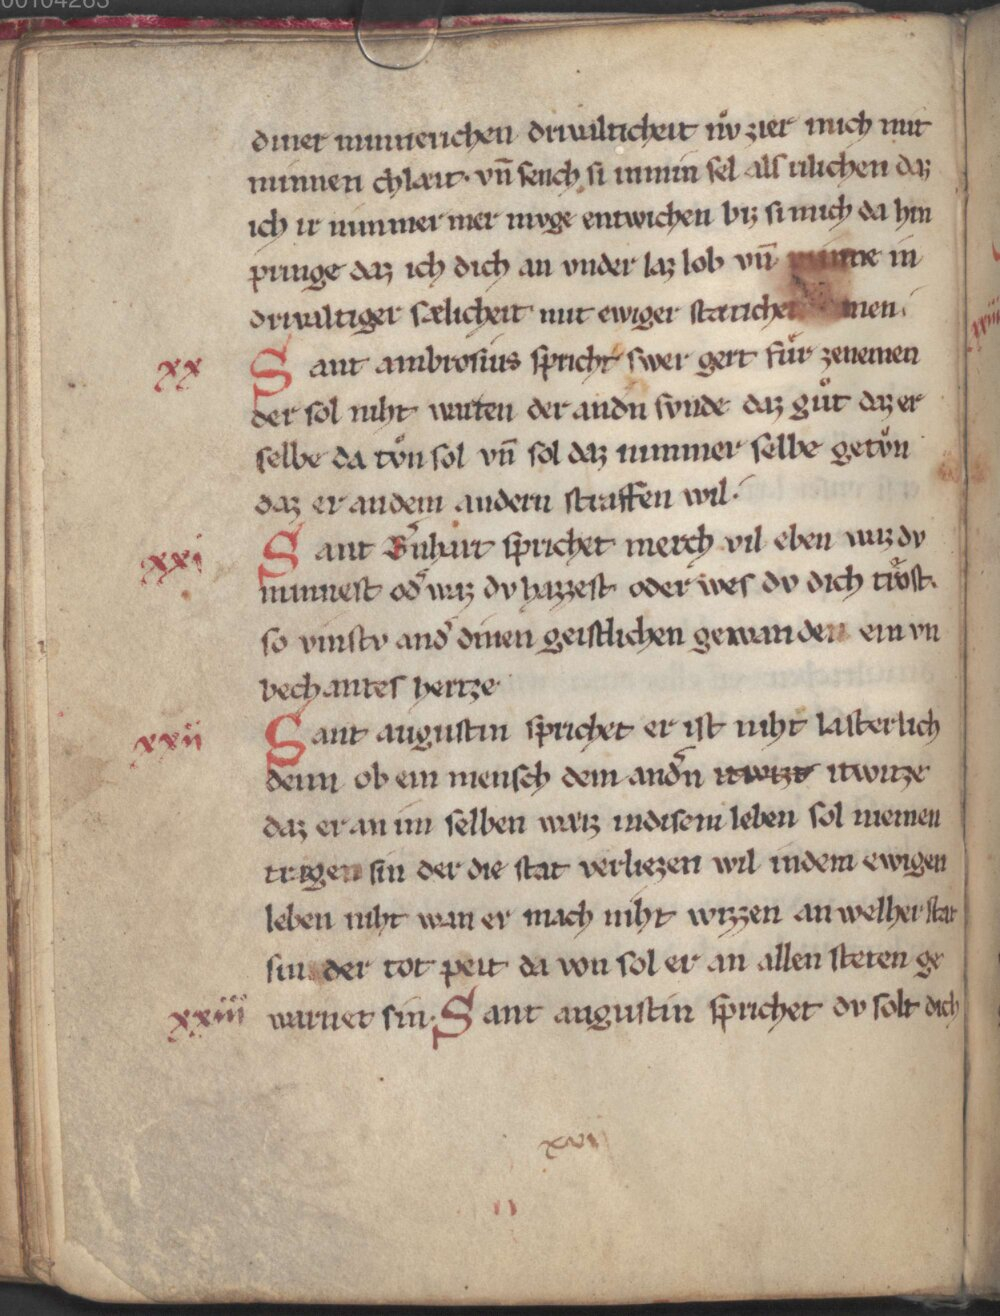 00104263
diner minnerichen drivalticheit nv̊ zier mich mit
minnen chlait. vn̄ sench si in min sel als vlichen daz
ich ir nimmer mer mvge entwichen biz si mich da hin
pringe daz ich dich an vnder laz lob vn̄ minne in
drivaltiger sælicheit mit ewiger stæticheit amen.
xx Sant ambrosius spricht swer gert fu̍r zenemen
der sol niht waiten der andn̄ svnde daz gůt daz er
selbe da tv̊n sol vn̄ sol daz nimmer selbe getv̊n
daz er an dem andern straffen wil.
xxi Sant B̄nhart sprichet merch vil eben waz dv
minnest od̄ waz dv hazzest oder wes dv dich trôst.
so vinstv and̄ dinen geistlichen gewanden ein vn
bechantes hertze
xxii Sant augustin sprichet er ist niht lasterlich
denn ob ein mensch dem andn̄ itwizt itwitze
daz er an im selben waiz in disem leben sol niemen
tragen sin der die stat verliezen wil in dem ewigen
leben niht wan er mach niht wizzen an welher stat
sin der tot peit da von sol er an allen steten ge
xxiii warnet sin. Sant augustin sprichet dv solt dich
xvi